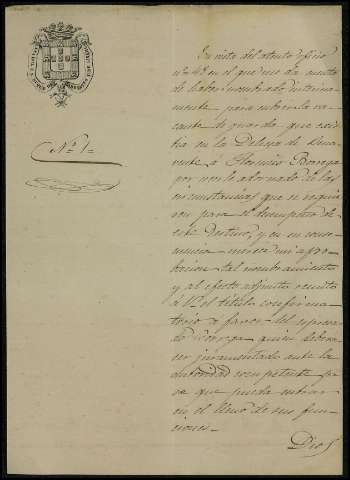 Nº 1º
En vista del atento oficio
nº 48 en el que me da cuenta
de haber nombrado interina-
mente para cubrir la va-
cante de guarda que exis-
tia en la Dehesa de
á Borrego
por ver le adornado de las
circunstancias que se requie-
ren para el desempeño de
este Destino, y en su conse-
cuencia merece mi apro-
bacion tal nombramiento
y al efecto adjunto remito
á V. el titulo confirma-
torio a favor del expresa-
do Borrego quien deberá
ser juramentado ante la
autoridad competente pa-
ra que pueda entrar
en el lleno de sus fun-
ciones.
Dios